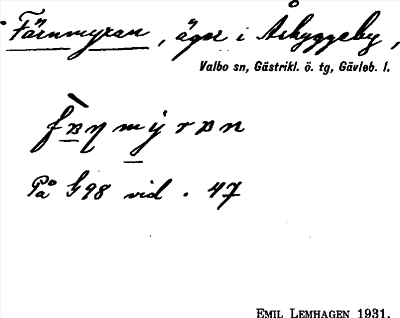 Färnmyran, ägor i Åbyggeby,
Valbo sn, Gästrikl. ö. tg, Gävleb. l.
På G98 vid . 47
EMIL LEMHAGEN 1931.